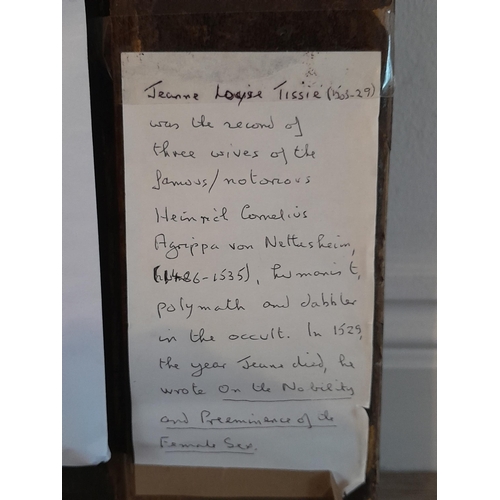 Jeanne Loyse Tissie (1503-29)
was the record of
three wives of the
famous/notorious
Heinrich Cornelius
Agrippa von Nettesheim,
(1486-1535), humanist,
polymath and dabbler
in the occult. In 1529,
the year Jeanne died, he
wrote On the Nobility
and Preeminance of the
Female Sex.